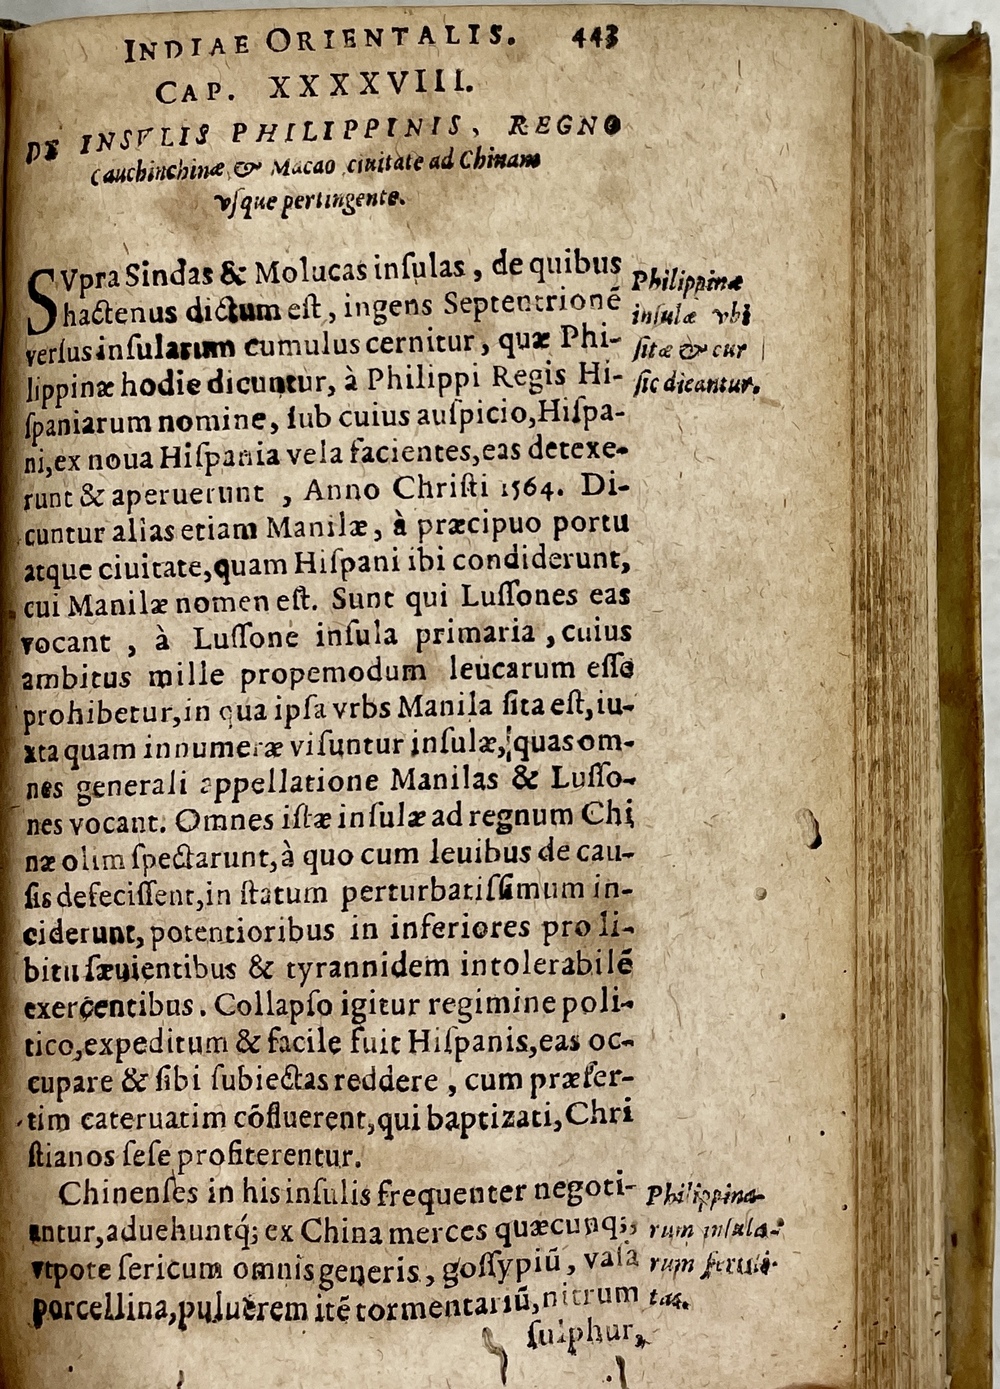 INDIAE ORIENTALIS. 443
CAP. XXXXVIII.
DE INSVLIS PHILIPPINIS, REGNO
Cauchinchinæ, & Macao ciuitate ad Chinam
vſque pertingente.
SVpra Sindas & Molucas inſulas, de quibus
hactenus dictum eſt, ingens Septentrionē
verſus inſularum cumulus cernitur, quæ Phi-
lippinæ hodie dicuntur, à Philippi Regis Hi-
ſpaniarum nomine, ſub cuius auſpicio, Hiſpa-
ni, ex noua Hiſpania vela facientes, eas detexe-
runt & aperuerunt, Anno Chriſti 1564. Di-
cuntur alias etiam Manilæ, à præcipuo portu
atque ciuitate, quam Hiſpani ibi condiderunt,
cui Manilæ nomen eſt. Sunt qui Luſſones eas
vocant, à Luſſone inſula primaria, cuius
ambitus mille propemodum leucarum eſſe
prohibetur, in qua ipſa vrbs Manila ſita eſt, iu-
xta quam innumeræ viſuntur inſulæ, quas om-
nes generali appellatione Manilas & Luſſo-
nes vocant. Omnes iſtæ inſulæ ad regnum Chi
næ olim ſpectarunt, à quo cum leuibus de cau-
ſis defeciſſent, in ſtatum perturbatiſſimum in-
ciderunt, potentioribus in inferiores pro li-
bitu ſæuientibus & tyrannidem intolerabilē
exercentibus. Collapſo igitur regimine poli-
tico, expeditum & facile fuit Hiſpanis, eas oc-
cupare & ſibi ſubiectas reddere, cum præſer-
tim cateruatim cōfluerent, qui baptizati, Chri
ſtianos ſeſe profiterentur.
Chinenſes in his inſulis frequenter negoti-
antur, aduehuntq́; ex China merces quæcunq;,
vtpote ſericum omnis generis, goſſypiū, vaſa
porcellina, puluerem itē tormentariū, nitrum
ſulphur,
Philippinæ
inſulæ vbi
ſitæ & cur
ſic dicantur.
Philippina-
rum inſula-
rum fertili-
tas.